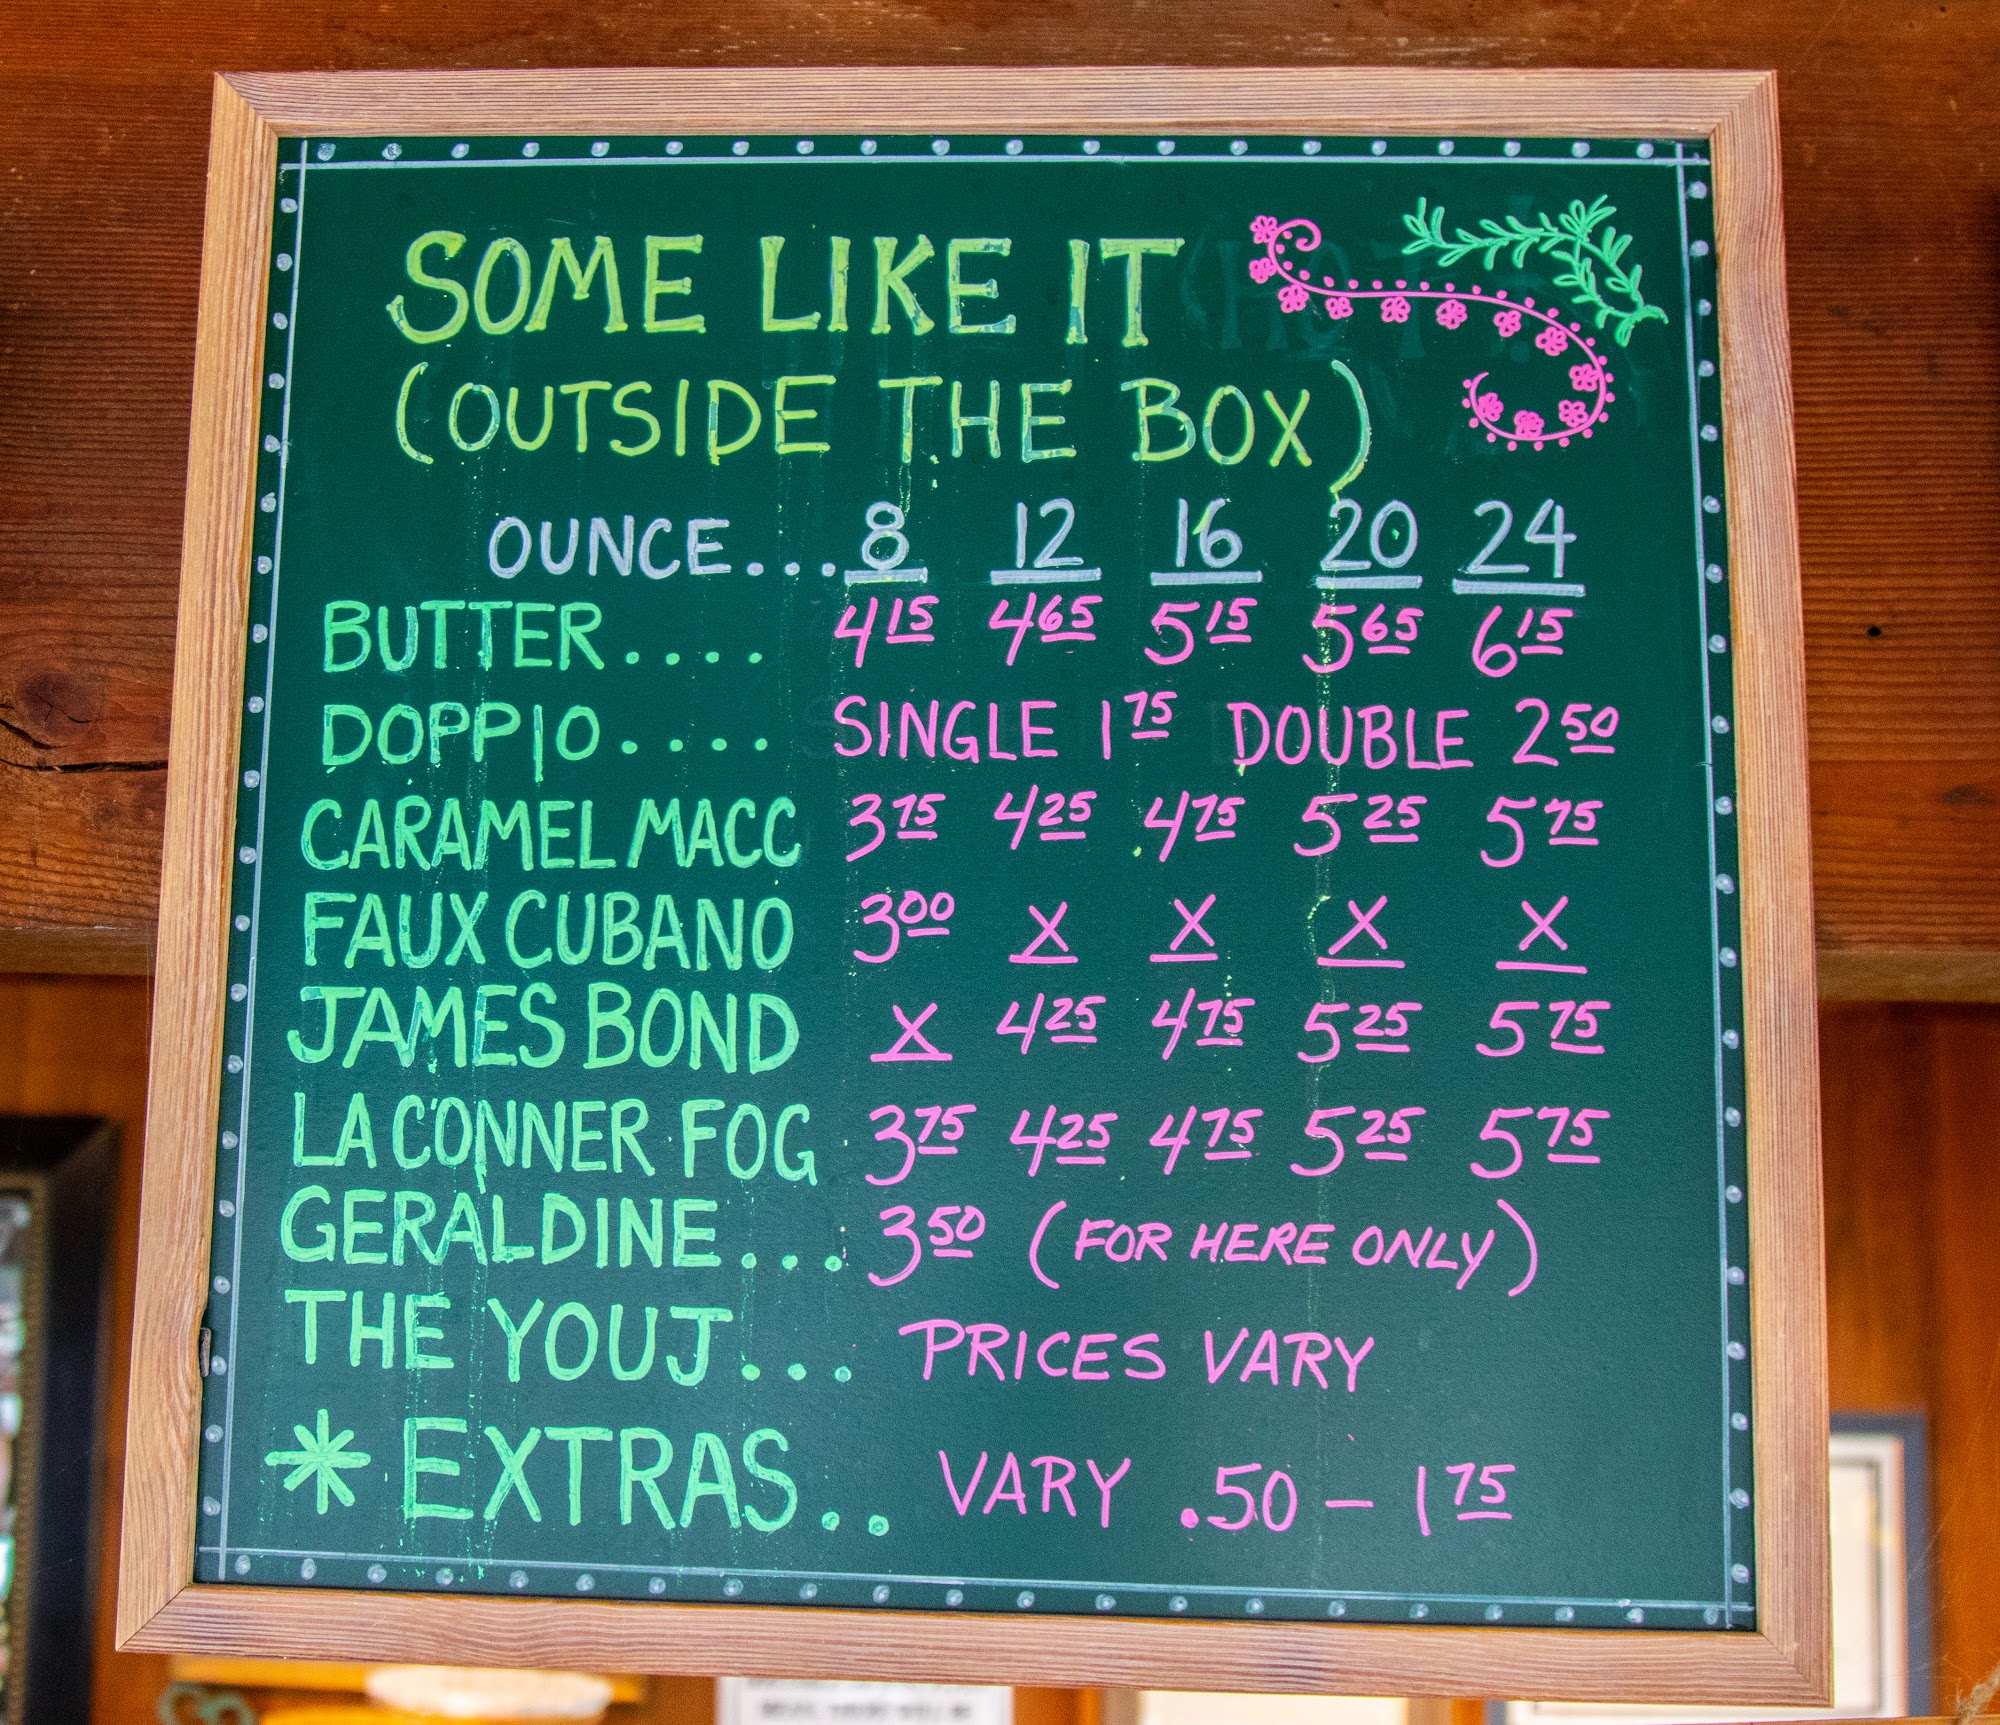 SOME LIKE IT
(OUTSIDE THE BOX)
OUNCE... 8 12 16 20 24
BUTTER.... 4 15 4 65 5 15 5 65 6 15
DOPPIO.... SINGLE 1 75 DOUBLE 2 50
CARAMEL MACC 3 75 4 25 4 75 5 25 5 75
FAUX CUBANO 3 00 X X X X
JAMES BOND X 4 25 4 75 5 25 5 75
LA CONNER FOG 3 75 4 25 4 75 5 25 5 75
GERALDINE.... 3 50 (FOR HERE ONLY)
THE YOUJ... PRICES VARY
* EXTRAS.. VARY .50 - 1 75